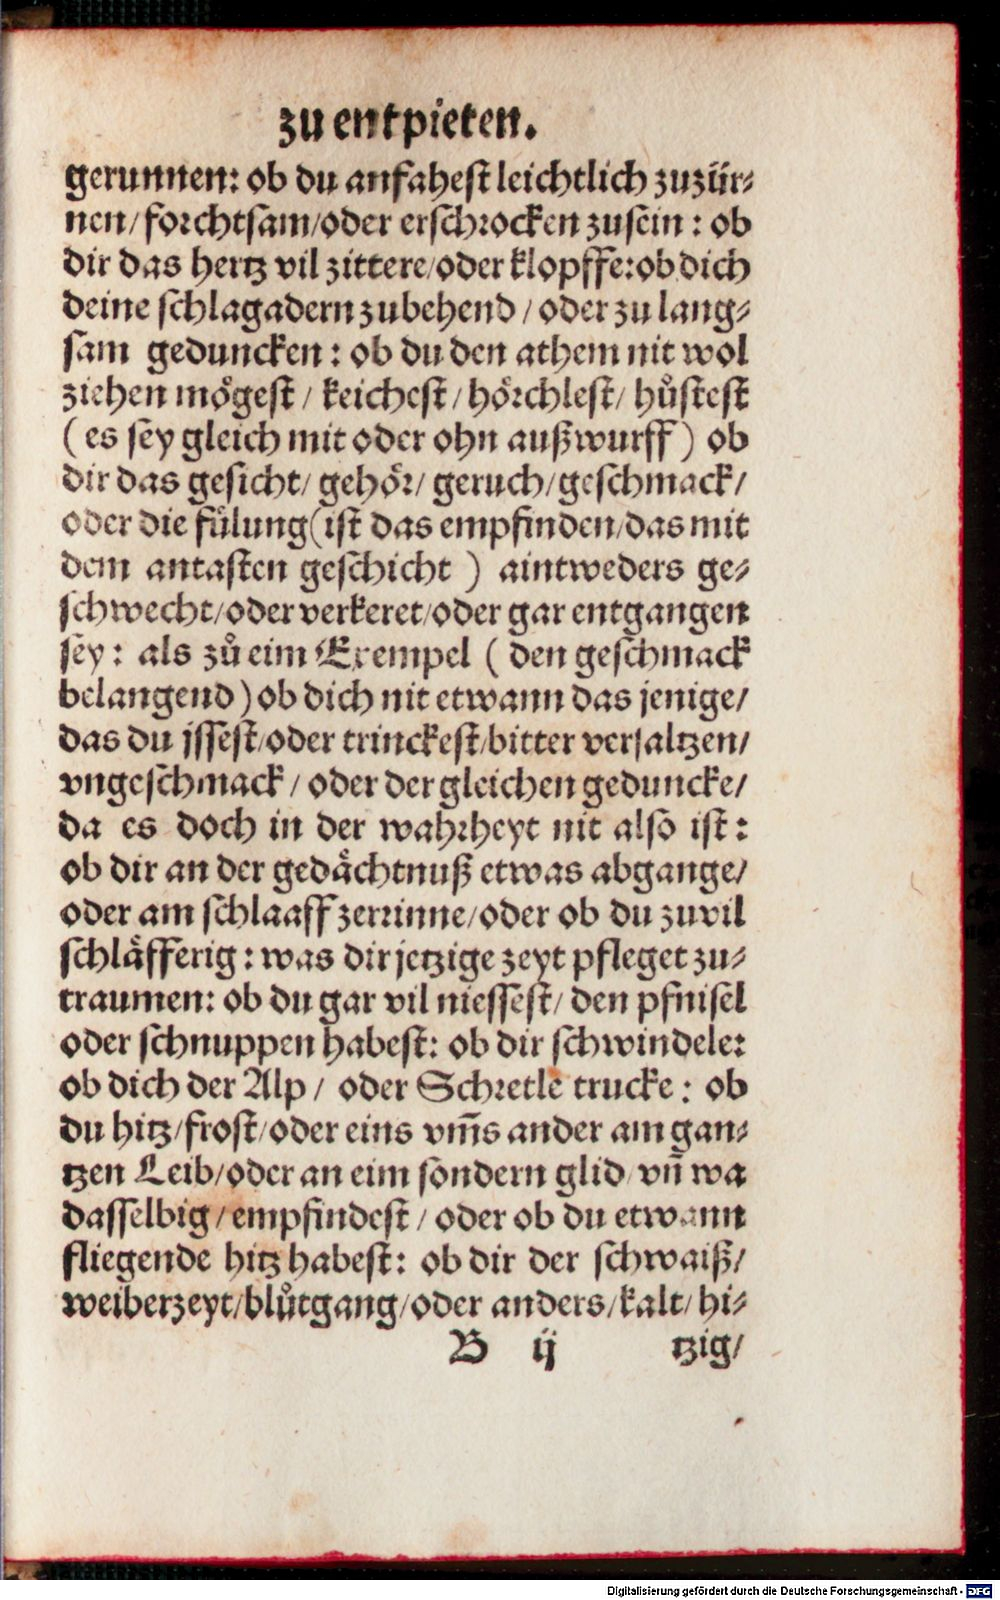 zu entpieten.
gerunnen: ob du anfahest leichtlich zuzür⸗
nen/ forchtsam/ oder erschrocken zusein: ob
dir das hertz vil zittere/ oder klopffe: ob dich
deine schlagadern zubehend/ oder zu lang⸗
sam geduncken: ob du den athem nit wol
ziehen mo̊gest/ keichest/ ho̊rchlest/ hůstest
(es sey gleich mit oder ohn außwurff) ob
dir das gesicht/ geho̊r/ geruch/ geschmack/
oder die fülung (ist das empfinden/ das mit
dem antasten geschicht) aintweders ge⸗
schwecht/ oder verkeret/ oder gar entgangen
sey: als zů eim Exempel (den geschmack
belangend) ob dich nit etwann das jenige/
das du jssest/ oder trinckest/ bitter versaltzen/
vngeschmack/ oder der gleichen geduncke/
da es doch in der wahrheyt nit also ist:
ob dir an der gedåchtnuß etwas abgange/
oder am schlaaff zerrinne/ oder ob du zuvil
schlåfferig: was dir jetzige zeyt pfleget zu⸗
traumen: ob du gar vil niessest/ den pfnisel
oder schnuppen habest: ob dir schwindele:
ob dich der Alp/ oder Schretle trucke: ob
du hitz/ frost/ oder eins vm̃s ander am gan⸗
tzen Leib/ oder an eim sondern glid/ vn̄ wa
dasselbig/ empfindest/ oder ob du etwann
fliegende hitz habest: ob dir der schwaiß/
weiberzeyt/ blůtgang/ oder anders/ kalt/ hi⸗
B ij tzig/
Digitalisierung gefördert durch die Deutsche Forschungsgemeinschaft - DFG